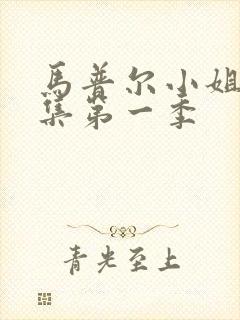 馬普尔小姐
集第一季
青光至上